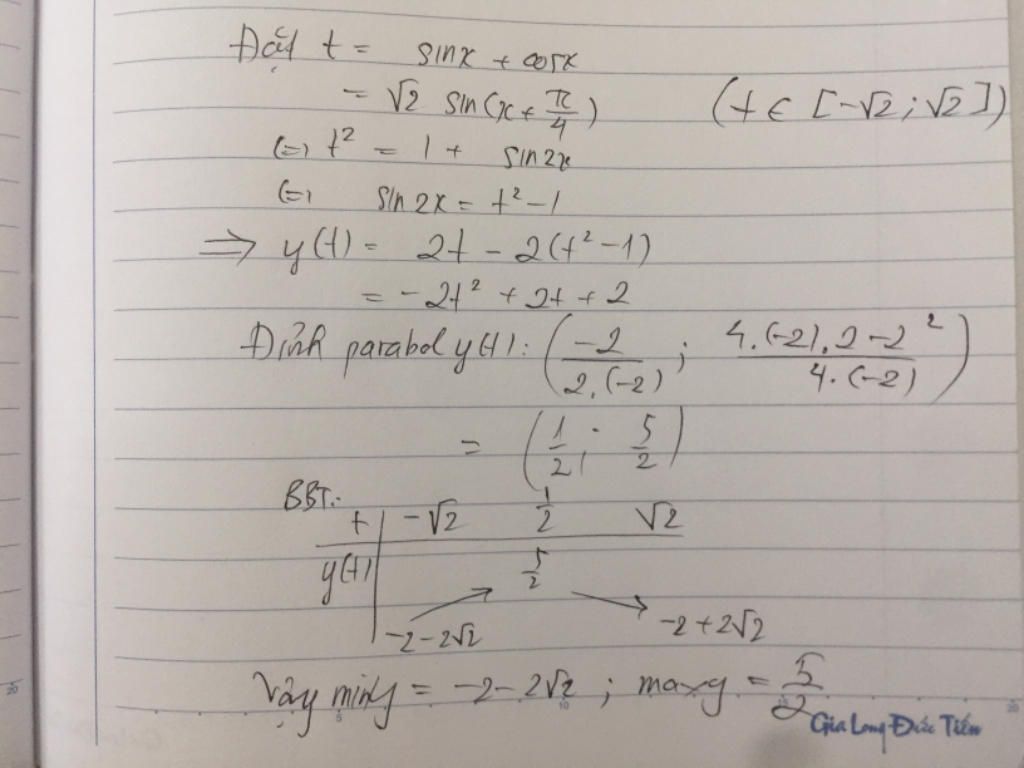 Đặt t = sinx + cosx
= √2 sin(x + π/4) (t ∈ [-√2; √2])
(=) t² = 1 + sin2x
(=) sin2x = t² - 1
=> y(t) = 2t - 2(t² - 1)
= -2t² + 2t + 2
Đỉnh parabol y(t): (-2/2.(-2); 4.(-2).2 - 2²/4.(-2))
= (1/2; 5/2)
BBT:
t -√2 1/2 √2
y(t) 5/2
-2-2√2 -2+2√2
Vậy miny = -2-2√2; maxy = 5/2
Gia Long Đức Tiến
20 5 10 20